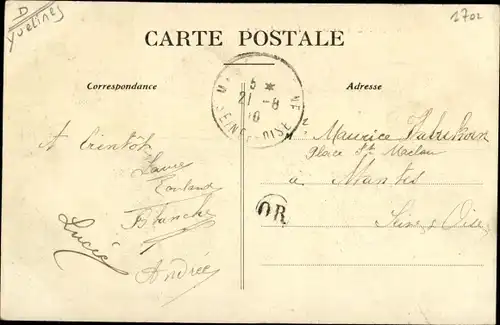 D
Yvelines
1702
CARTE POSTALE
Correspondance
Adresse
5 *
21 - 8
10
SEINE - OISE
A bientôt
Blanche
Lucie
Andrée
Maurice
Place St Maclou
à Mantes
Seine & Oise
OR